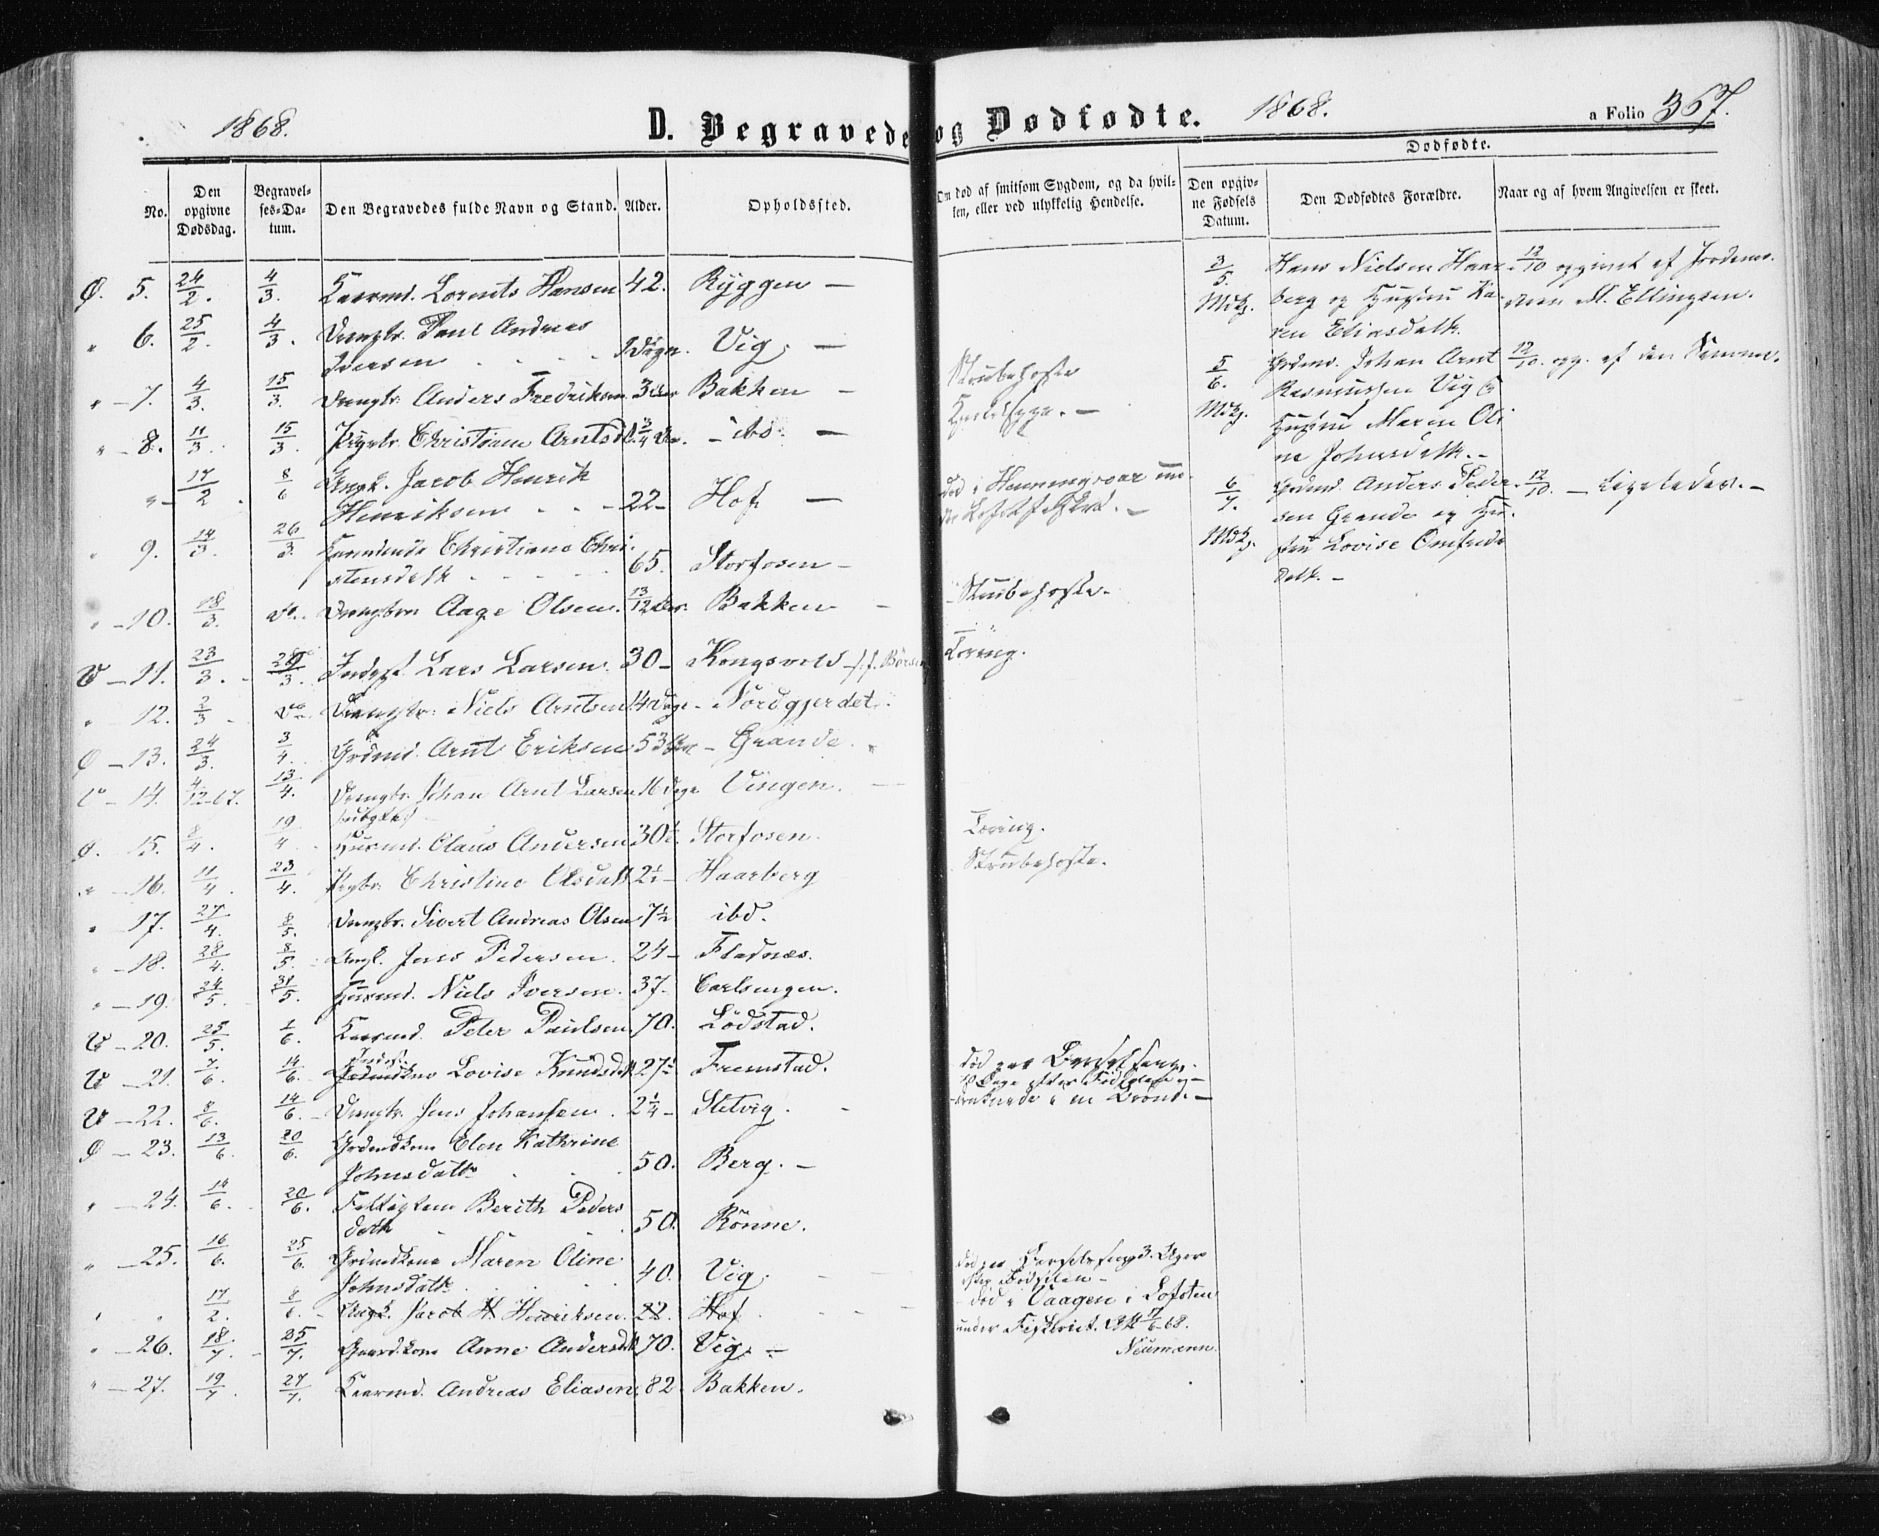 1868.
D. Begravede og Dødfødte.
1868.
a Folio 367.
Dødfødte.
No.
Den opgivne Dødsdag.
Begravelses-Datum.
Den Begravedes fulde Navn og Stand.
Alder.
Opholdssted.
Om død af smitsom Sygdom, og da hvilken, eller ved ulykkelig Hendelse.
Den opgivne Fødsels Datum.
Den Dødfødtes Forældre.
Naar og af hvem Angivelsen er skeet.
Ø. 5. 24/2. 4/3. Kaarmd. Lorents Hansen 42. Ryggen —
" 6. 25/2. 4/3. Drengbr. Paul Andreas
Iversen 1 Døgn. Vig. —
" — 7. 4/3. 15/3. Drengbr. Anders Fredriksen 3 Bakken — Strubehoste
" — 8. 11/3. 15/3. Pigebr. Christiane Arntsd. 3/4 — ibd. —
" — 17/2. 8/6 Ungk. Jacob Henrik
Henriksen 22 — Hof — død i Henningsvær un-
" 9. 14/3. 26/3. Christiane Chri-
stensdatt. 65. Storfosen —
" — 10. 18/3. Do. Drengbr. Aage Olsen. 13/12 Bakken — Strubehoste.
V — 11. 23/3. 28/3. Inderst Lars Larsen. 30 — Kongsvold Tæring.
" 12. 2/3 Do. Drengbr. Niels Arntsen 14 Dage — Nordgjerdet.
Ø — 13. 24/3. 3/4. Grdmd. Arnt Eriksen 53 — Grande.
V — 14. 4/12-67. 13/4. Drengbr. Johan Arnt Larsen 16 Dage Vingen. —
Ø. 15. 8/4. 19/4. Husmd. Claus Andersen 30½ Storfosen. Tæring.
" — 16. 11/4. 23/4. Pigebr. Christine Olsdatt. 2½ — Haarberg Strubehoste.
" — 17. 27/4. 8/5. Drengbr. Sivert Andreas Olsen. 7½ ibd.
" — 18. 28/4. 8/5. Ungk. Jens Pedersen. 24 — Fladnæs.
" — 19. 24/5. 31/5. Husmd. Niels Iversen. 37. Carlsengen.
V — 20. 25/5. 1/6. Kaarmd. Peter Paulsen. 70. Lödstad.
V — 21. 7/6. 14/6. Lovise Knudsdatt. 27½ Fremstad. død paa Barselseng,
V — 22. 8/6. 14/6. Drengbr. Jens Johansen. 2¼ — Sletvig. druknede i en Brønd. —
Ø — 23. 13/6. 20/6. Grdmdkone Elen Kathrine
Johnsdatt. 50. Berg. —
" — 24. 14/6. 20/6. Berith Peders
datt. 50. Rönne.
" — 25. 16/6. 25/6. Grdmdkone Maren Oline
Johnsdatt. 40. Vig. død paa Barselseng 3 Uger
efter Fødselen —
" 17/2. 8/6. Ungk. Jacob H. Henriksen. 22. Hof. død i Vaagen i Lofoten
under Fiskeriet.
Neumann.
" — 26. 18/7. 25/7. Gaardkone Anne Andersdatt. 70. Vig. —
" — 27. 19/7. 27/7. Kaarmd. Andreas Eliasen. 82. Bakken.
3/5. Hans Nielsen Haar- 12/10 opgivet af Jordemo-
berg og Hustru Ka- deren M. Ellingsen.
ren Eliasdatt.
5/6. Grdmd. Johan Arnt 12/10. opg. af den Samme.
Rasmussen Vig &
Hustru Maren Oli
ne Johnsdatt. —
6/7. Grdmd. Anders Peder- 12/10. — Ligeledes. —
sen Grande og Hu-
stru Lovise
datt. —